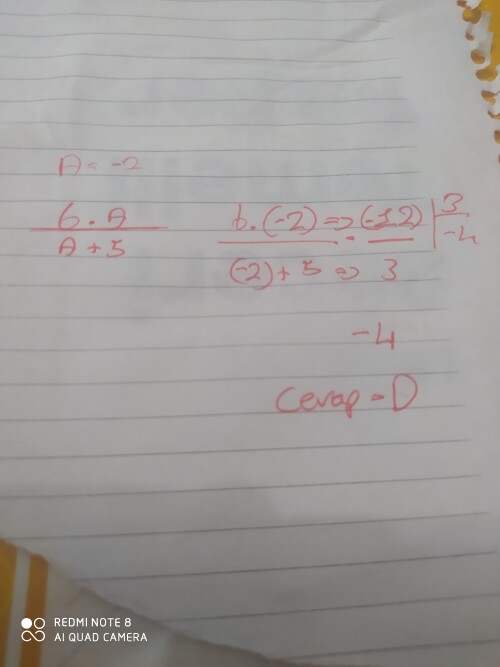 A = -2
6 . A
A + 5
6 . (-2) => (-12) | 3
(-2) + 5 => 3
-4
-4
Cevap = D
REDMI NOTE 8
AI QUAD CAMERA